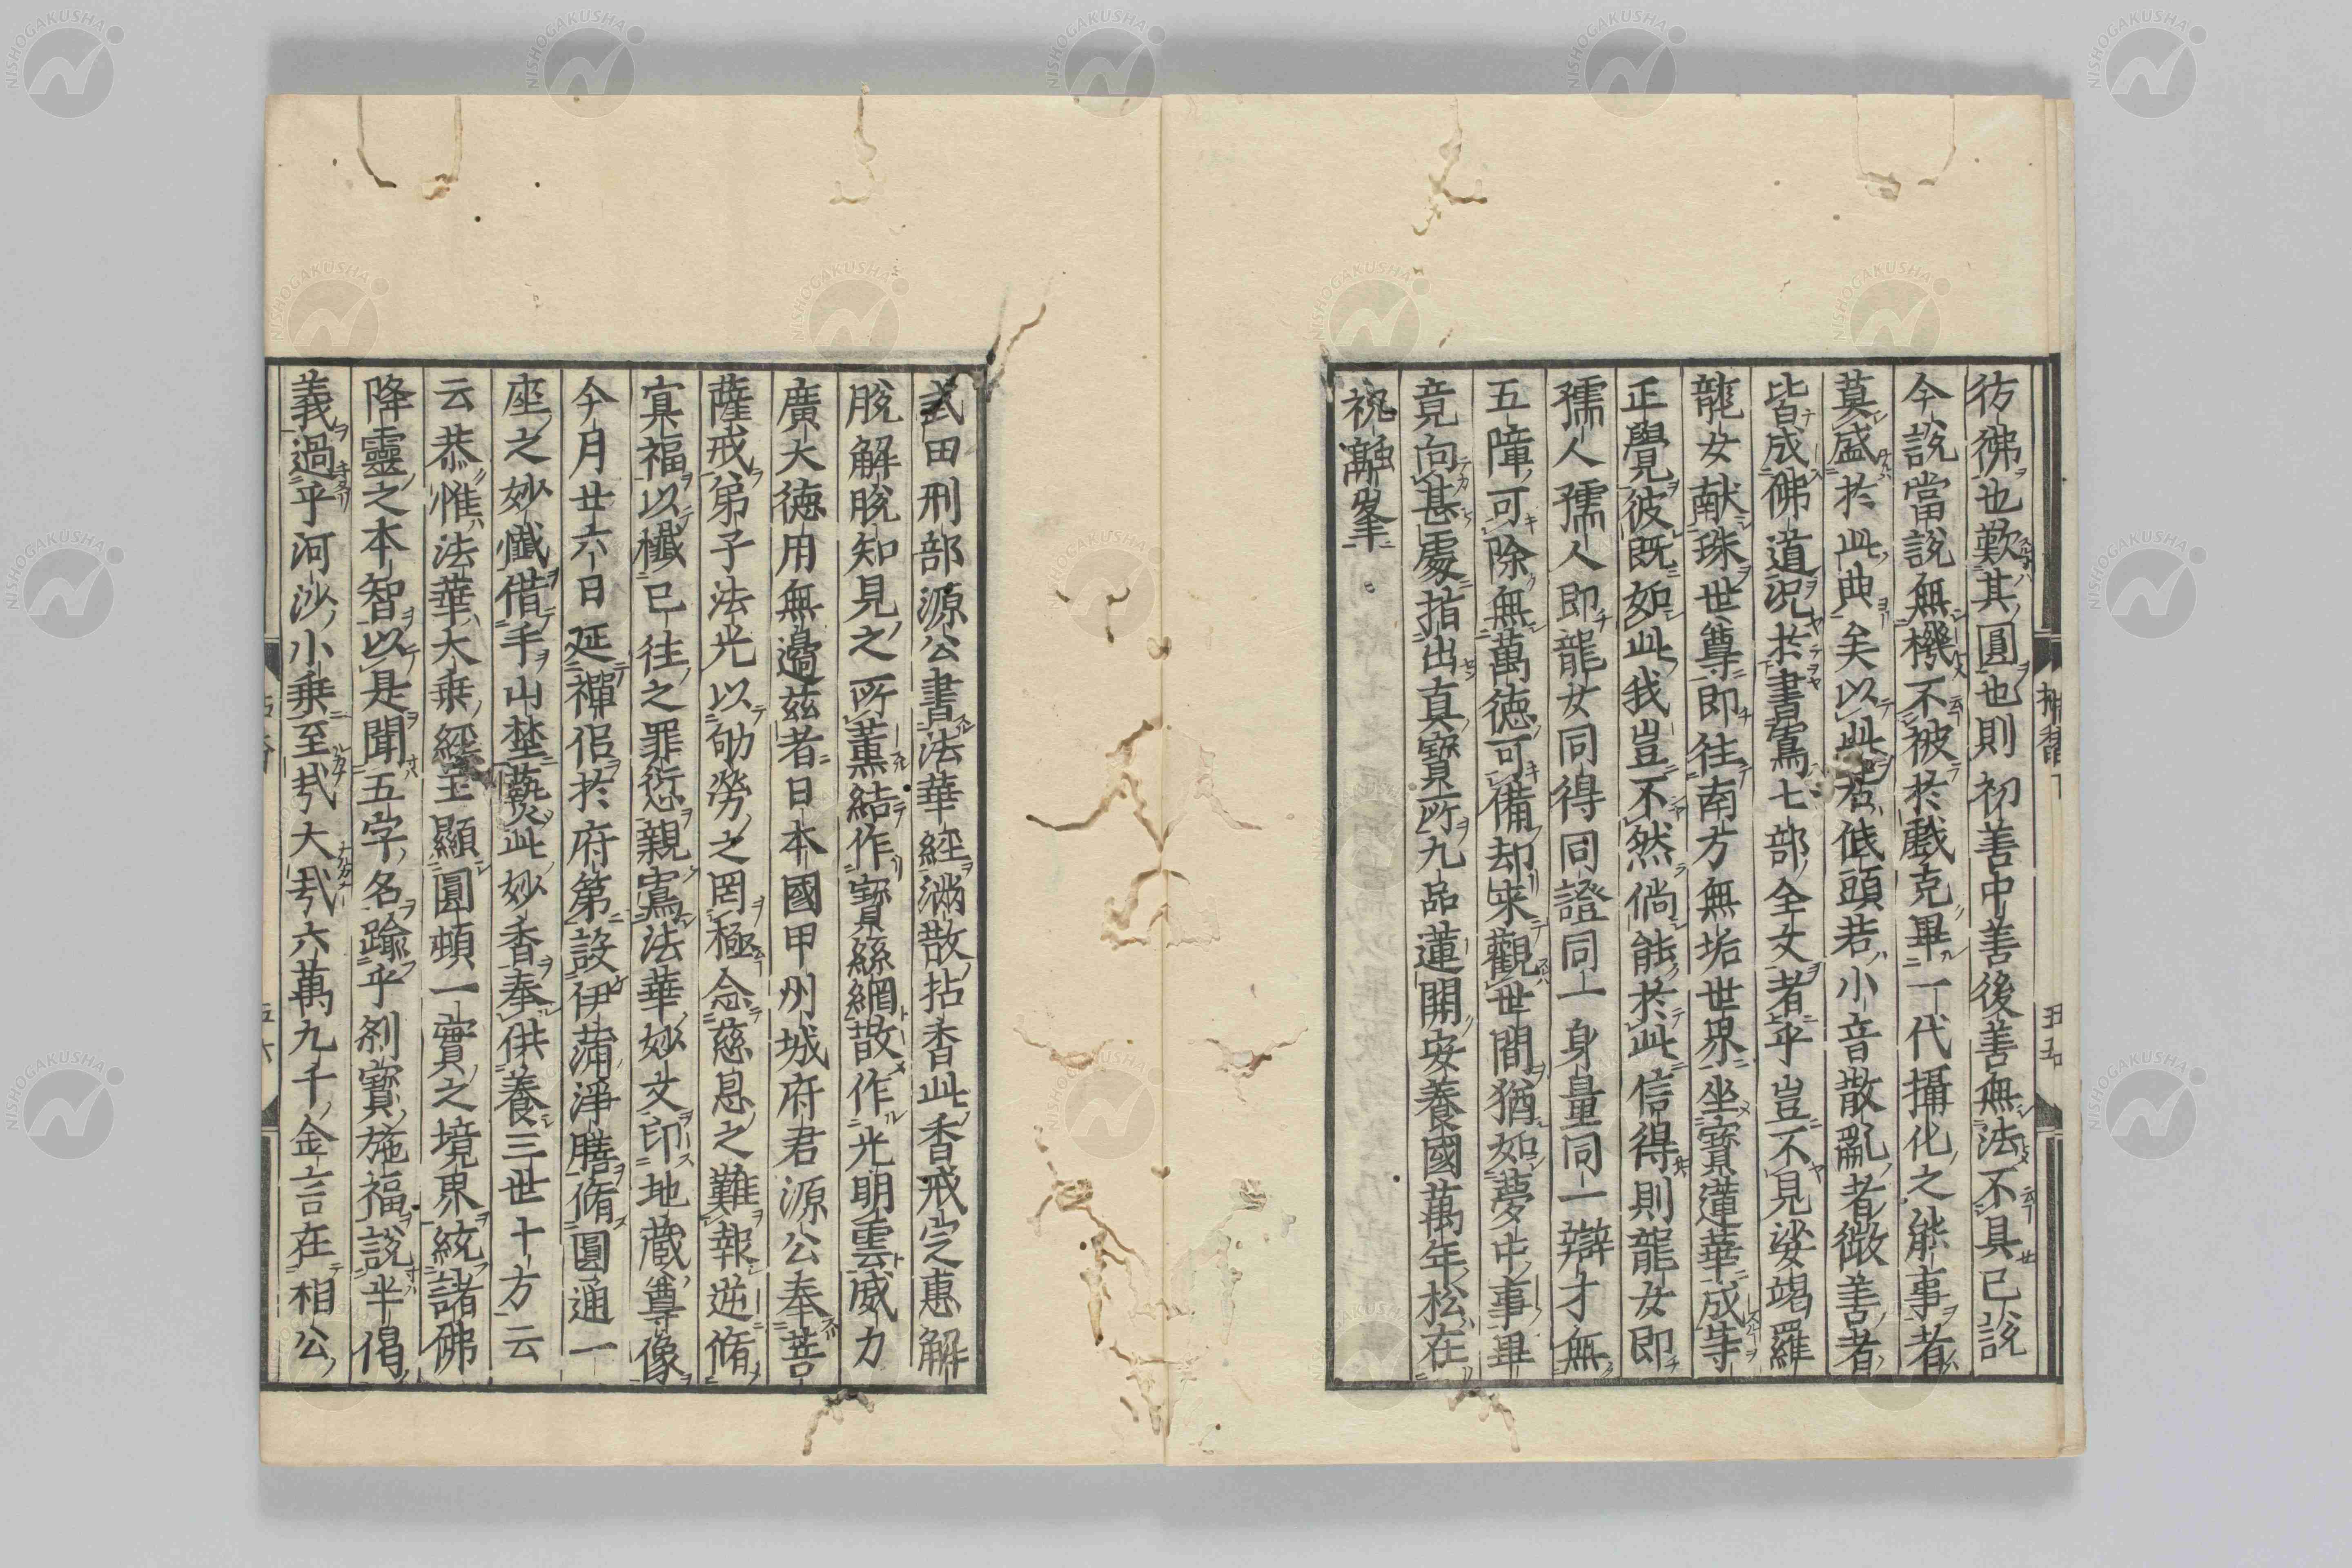 彷彿也歎其圓也則初善中善後善無法不具已說
今說當說無機不被於戲克畢一代攝化之能事者
莫盛於此典矣以此若低頭若小音散亂者微善者
皆成佛道況於書寫七部全文者乎豈不見娑竭羅
龍女献珠世尊即往南方無垢世界坐寶蓮華成等
正覺彼既如此我豈不然倘能於此信得則龍女即
孺人孺人即龍女同得同證同一身量同一辯才無
五障可除無萬德可備却来觀世間猶如夢中事畢
竟向甚處指出真寶所九品蓮開安養國萬年松在
祝融峯
武田刑部源公書法華經満散拈香此香戒定惠解
脫解脫知見之所薰結作寶絲網散作光明雲威力
廣大德用無邊茲者日本國甲州城府君源公奉菩
薩戒弟子法光以劬勞之罔極念慈息之難報逆脩
冥福以懺已往之罪愆親寫法華妙文印地藏尊像
今月廿六日延禪侶於府第設伊蒲淨膳脩圓通一
座之妙懺借手山埜爇此妙香奉供養三世十方云
云恭惟法華大乗經王顯圓頓一實之境界統諸佛
降靈之本智以是聞五字名踰乎刹寶施福說半偈
義過乎河沙小乗至哉大哉六萬九千金言在相公
拈香下
五五
五六